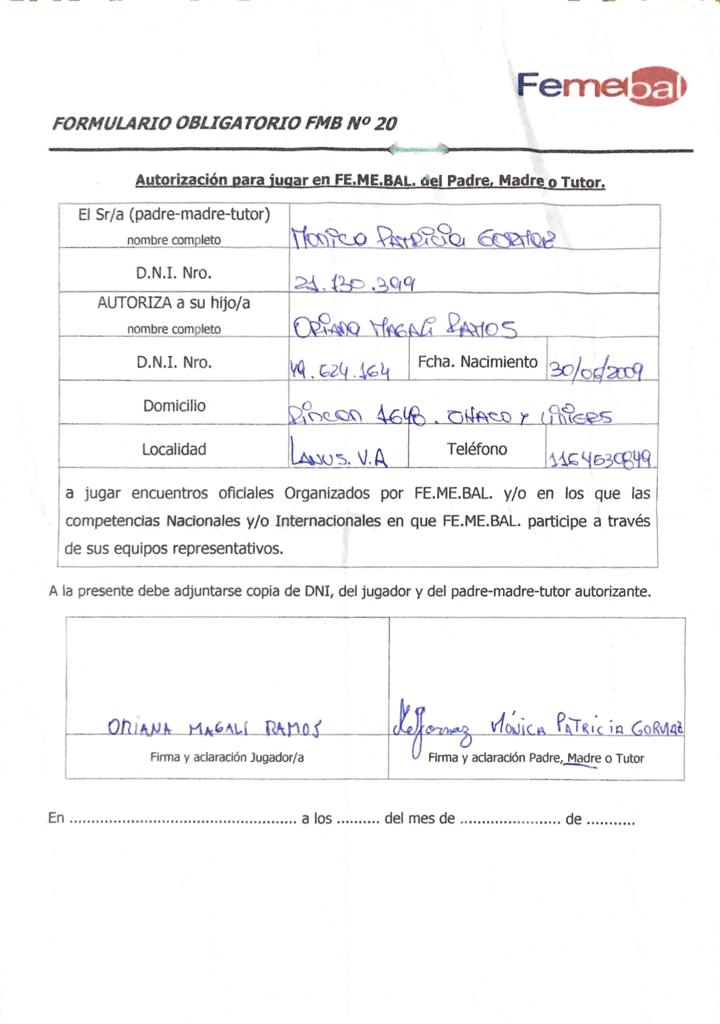 Femebal
FORMULARIO OBLIGATORIO FMB Nº 20
Autorización para jugar en FE.ME.BAL. del Padre, Madre o Tutor.
El Sr/a (padre-madre-tutor)
nombre completo
MONICA PATRICIA GORMAZ
D.N.I. Nro.
21.130.399
AUTORIZA a su hijo/a
nombre completo
ORIANA MAGALÍ RAMOS
D.N.I. Nro. 49.624.164 Fcha. Nacimiento 30/06/2009
Domicilio RINCON 1648. CHACO Y LINIERS
Localidad LANUS. V.A Teléfono 1164630849
a jugar encuentros oficiales Organizados por FE.ME.BAL. y/o en los que las
competencias Nacionales y/o Internacionales en que FE.ME.BAL. participe a través
de sus equipos representativos.
A la presente debe adjuntarse copia de DNI, del jugador y del padre-madre-tutor autorizante.
ORIANA MAGALÍ RAMOS
MÓNICA PATRICIA GORMAZ
Firma y aclaración Jugador/a
Firma y aclaración Padre, Madre o Tutor
En ................................................ a los .......... del mes de ...................... de ...........